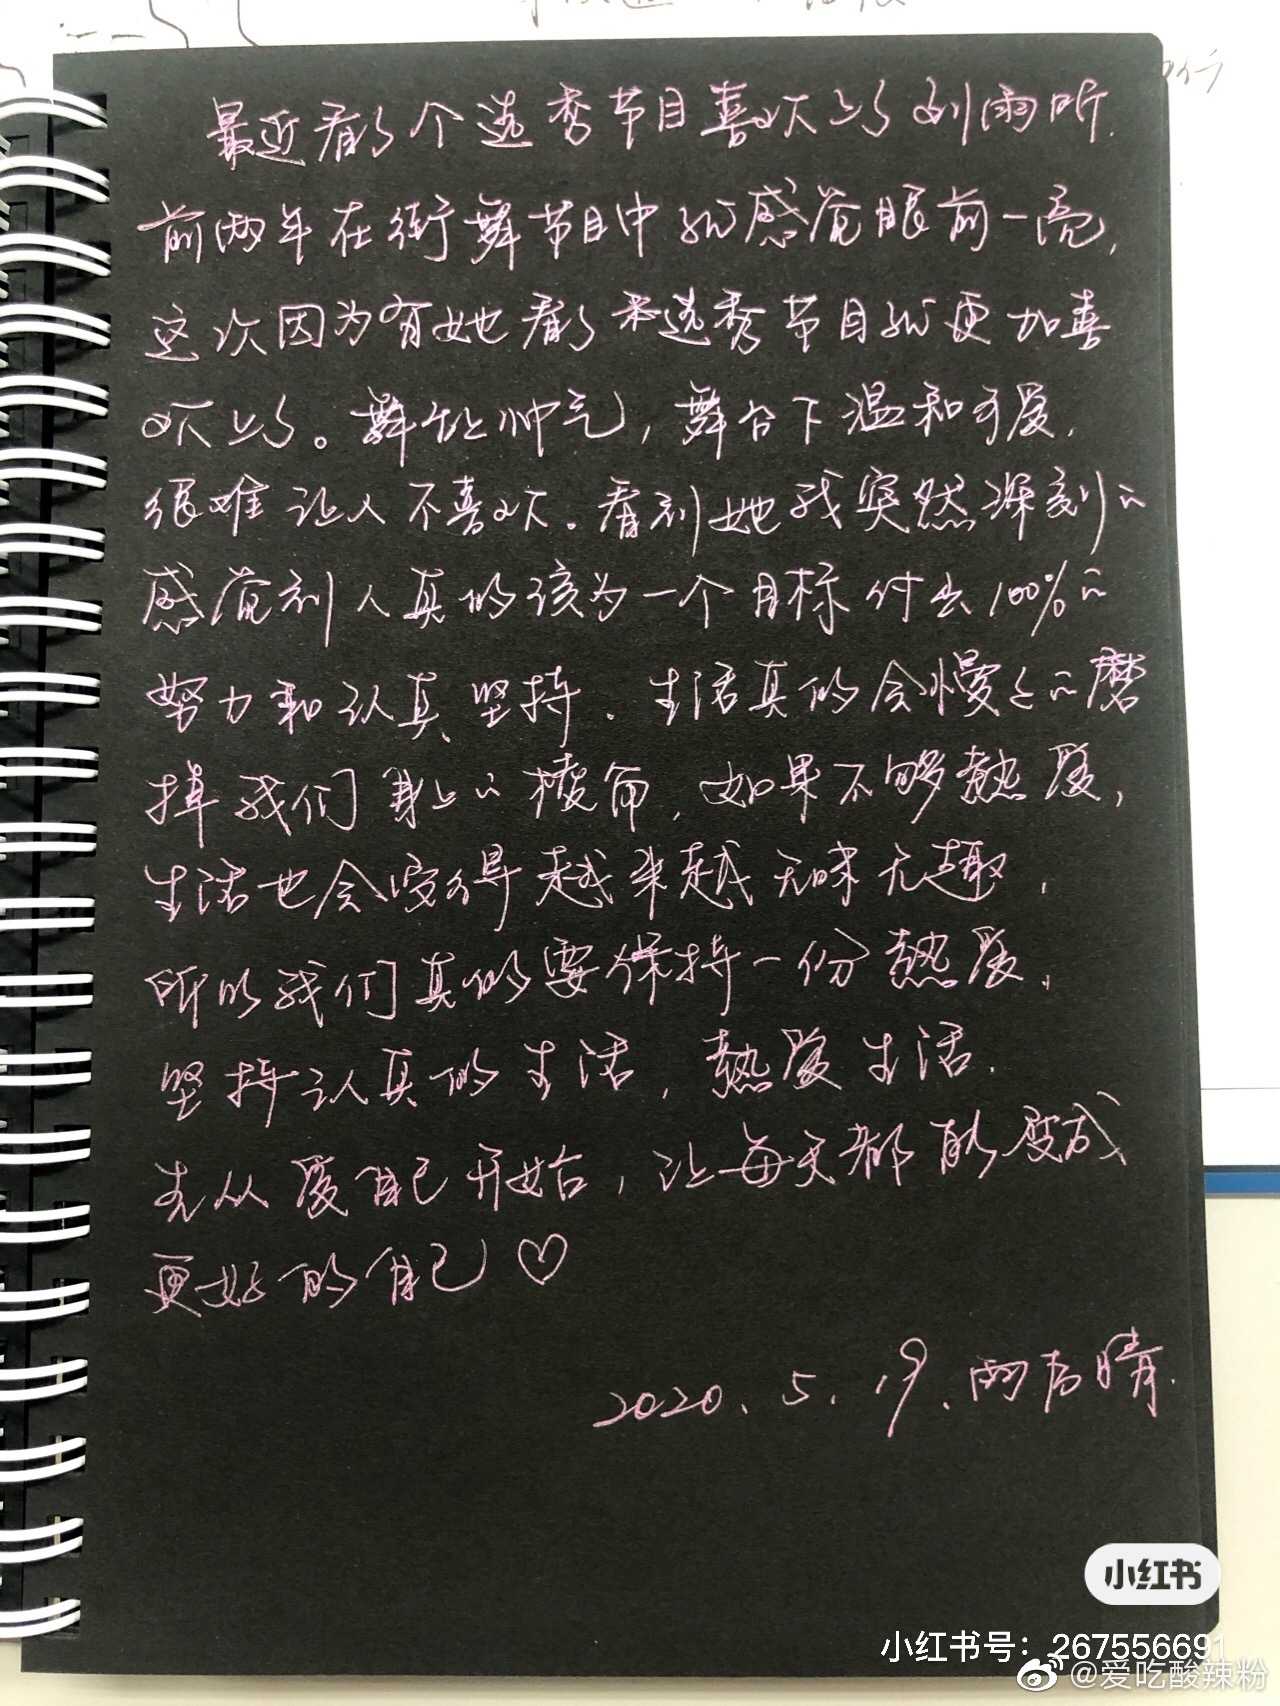 最近看了个选秀节目喜欢上了刘雨昕.
前两年在街舞节目中就感觉眼前一亮,
这次因为有她看了来选秀节目就更加喜
欢上了。舞台上帅气,舞台下温和可爱,
很难让人不喜欢。看到她我突然深刻的
感觉到人真的该为一个目标付出100%的
努力和认真坚持.生活真的会慢慢的磨
掉我们身上的棱角,如果不够热爱,
生活也会变得越来越无味无趣,
所以我们真的要保持一份热爱,
坚持认真的生活,热爱生活.
先从爱自己开始,让每天都能变成
更好的自己♡
2020.5.19.雨后晴.
小红书
小红书号:267556691
@爱吃酸辣粉